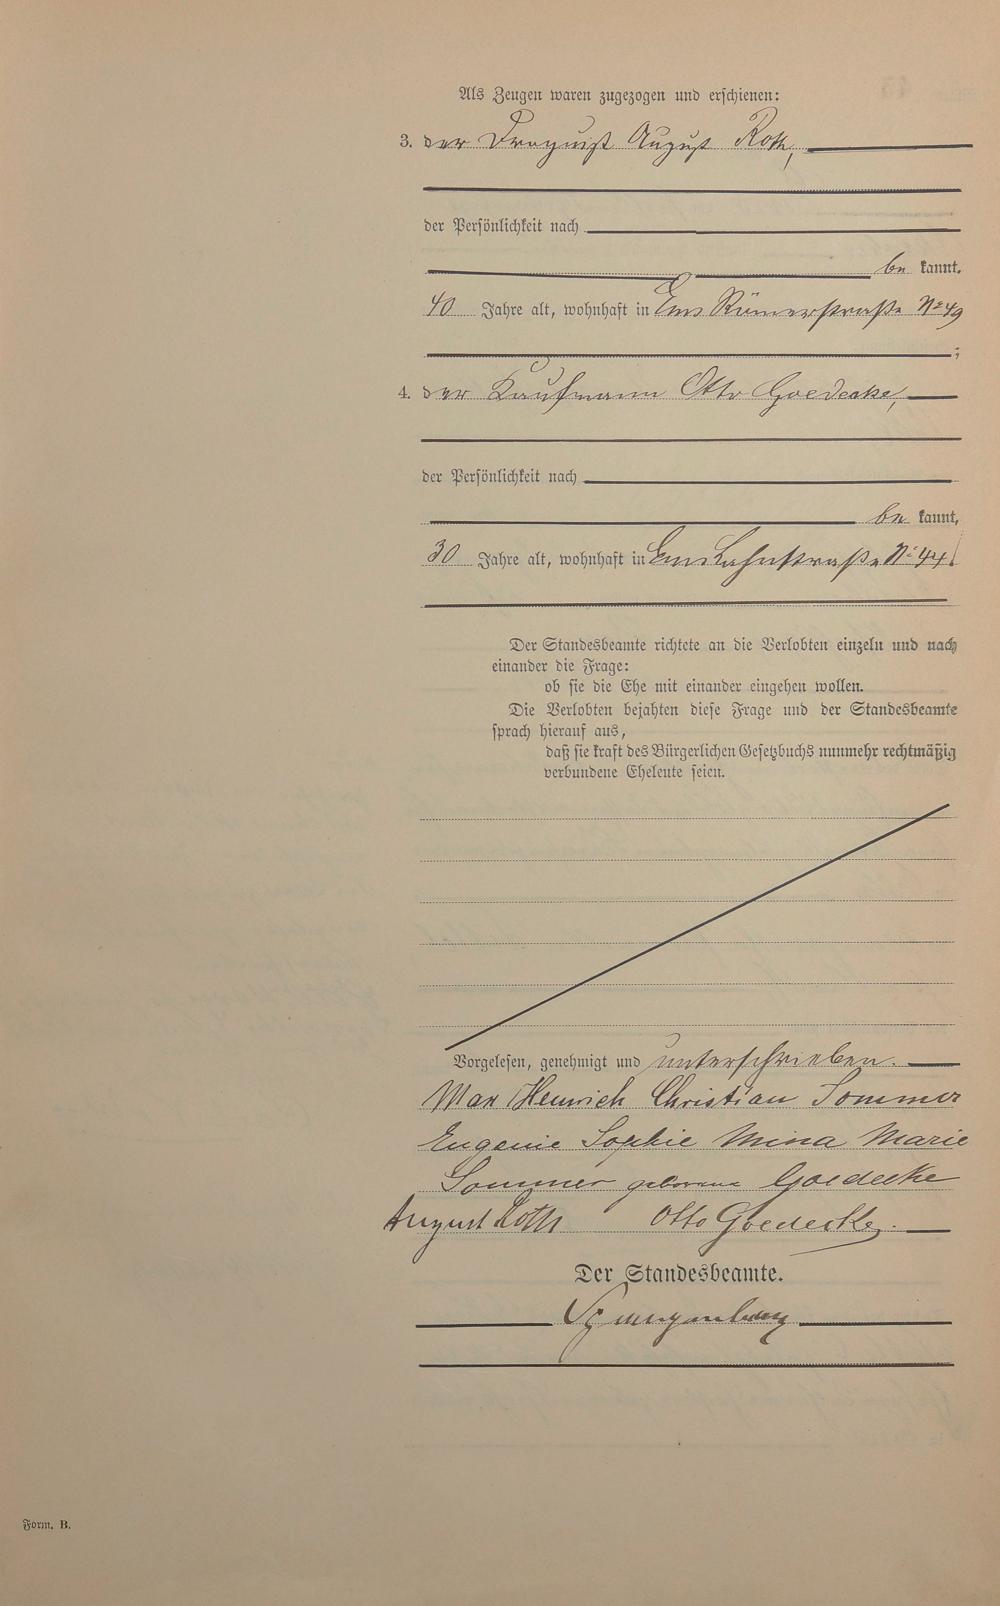 Als Zeugen waren zugezogen und erschienen:
3. der Droguist August Roth,
der Persönlichkeit nach
be kannt,
40 Jahre alt, wohnhaft in Ems Römerstraße No 49
;
4. der Kaufmann Otto Goedecke,
der Persönlichkeit nach
be kannt,
30 Jahre alt, wohnhaft in Ems Lahnstraße No 44.
Der Standesbeamte richtete an die Verlobten einzeln und nach
einander die Frage:
ob sie die Ehe mit einander eingehen wollen.
Die Verlobten bejahten diese Frage und der Standesbeamte
sprach hierauf aus,
daß sie kraft des Bürgerlichen Gesetzbuchs nunmehr rechtmäßig
verbundene Eheleute seien.
Vorgelesen, genehmigt und unterschrieben.
Max Heinrich Christian Sommer
Eugenie Sophie Mina Marie
Sommer geborene Goedecke
August Roth Otto Goedecke.
Der Standesbeamte.
Form. B.